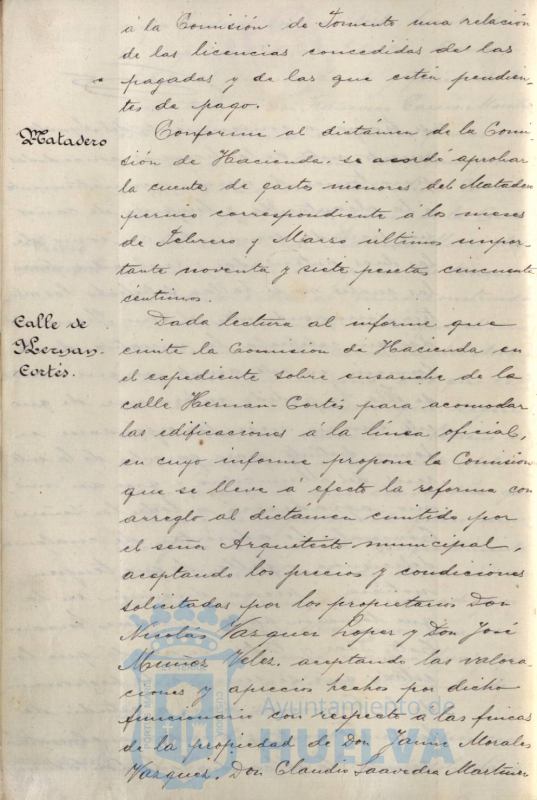 á la Comisión de Fomento una relación
de las licencias concedidas de las
pagadas y de las que estén pendien-
tes de pago.
Matadero
Conforme al dictámen de la Comi-
sión de Hacienda, se acordó aprobar
la cuenta de gastos menores del Matadero
correspondiente á los meses
de Febrero y Marzo últimos impor-
tante noventa y siete pesetas cincuenta
céntimos.
Calle de
Hernan-
Cortés.
Dada lectura al informe que
emite la Comision de Hacienda en
el expediente sobre ensanche de la
calle Hernan-Cortés para acomodar
las edificaciones á la línea oficial,
en cuyo informe propone la Comisión
que se lleve á efecto la reforma con
arreglo al dictámen emitido por
el señor Arquitecto municipal,
aceptando los precios y condiciones
solicitadas por los propietarios Don
Nicolás Vazquez Lopez y Don José
Muñoz Velez, aceptando las valora-
ciones y aprecios hechos por dicho
funcionario con respecto a las fincas
de la propiedad de Don Jaime Morales
Vazquez, Don Claudio Saavedra Martinez
Ayuntamiento de
HUELVA